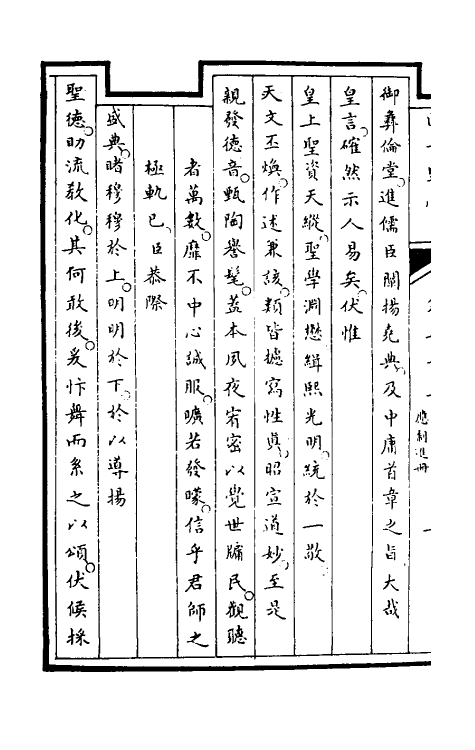 應制進冊
御彝倫堂進儒臣闡揚堯典及中庸首章之旨大哉
皇言確然示人易矣伏惟
皇上聖資天縱聖學淵懋緝熙光明統於一敬
天文丕煥作述兼該類皆攄寫性真昭宣道妙至是
親發德音甄陶譽髦蓋本夙夜宥密以覺世牖民觀聽
者萬數靡不中心誠服曠若發矇信乎君師之
極軌已臣恭際
盛典睹穆穆於上明明於下於以導揚
聖德助流教化其何敢後爰忭舞而系之以頌伏候採